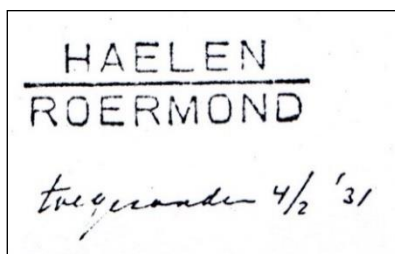 HAELEN
ROERMOND
toegezonden 4/2 '31